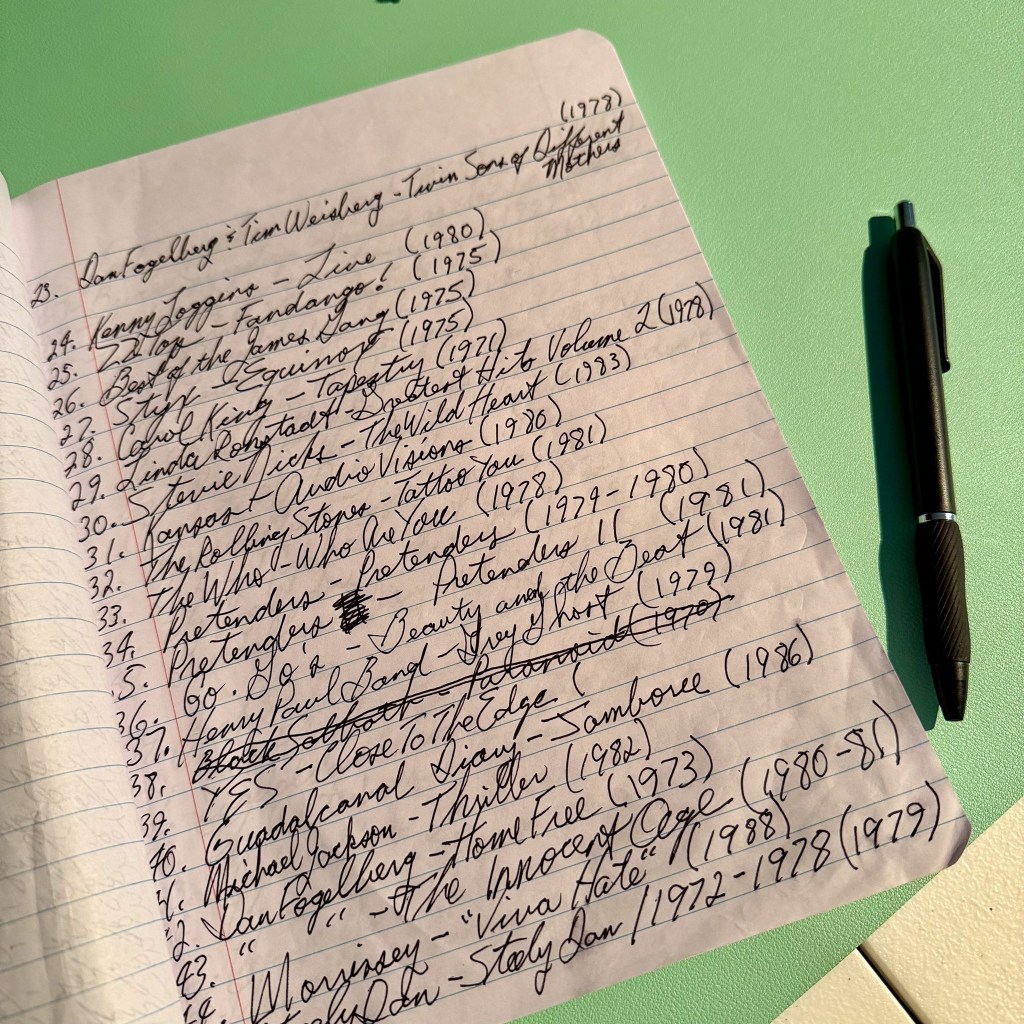 (1978)
23. Dan Fogelberg & Tim Weisberg - Twin Sons of Different
Mothers
24. Kenny Loggins - Live (1980)
25. ZZ Top - Fandango! (1975)
26. Best of the James Gang (1975)
27. Styx - Equinox (1975)
28. Carol King - Tapestry (1971)
29. Linda Ronstadt - Greatest Hits Volume 2 (1978)
30. Stevie Nicks - The Wild Heart (1983)
31. Kansas - Audio Visions (1980)
32. The Rolling Stones - Tattoo You (1981)
33. The Who - Who Are You (1978)
34. Pretenders - Pretenders (1979-1980)
5. Pretenders - Pretenders II (1981)
36. Go. Go's - Beauty and the Beat (1981)
37. Henry Paul Band - Grey Ghost (1979)
Black Sabbath - Paranoid (1970)
38. YES - Close To The Edge (
39. Guadalcanal Diary - Jamboree (1986)
40. Michael Jackson - Thriller (1982)
1. Dan Fogelberg - Home Free (1973)
2. " " - The Innocent Age (1980-81)
43. Morrissey - "Viva Hate" (1988)
Steely Dan - Steely Dan / 1972-1978 (1979)